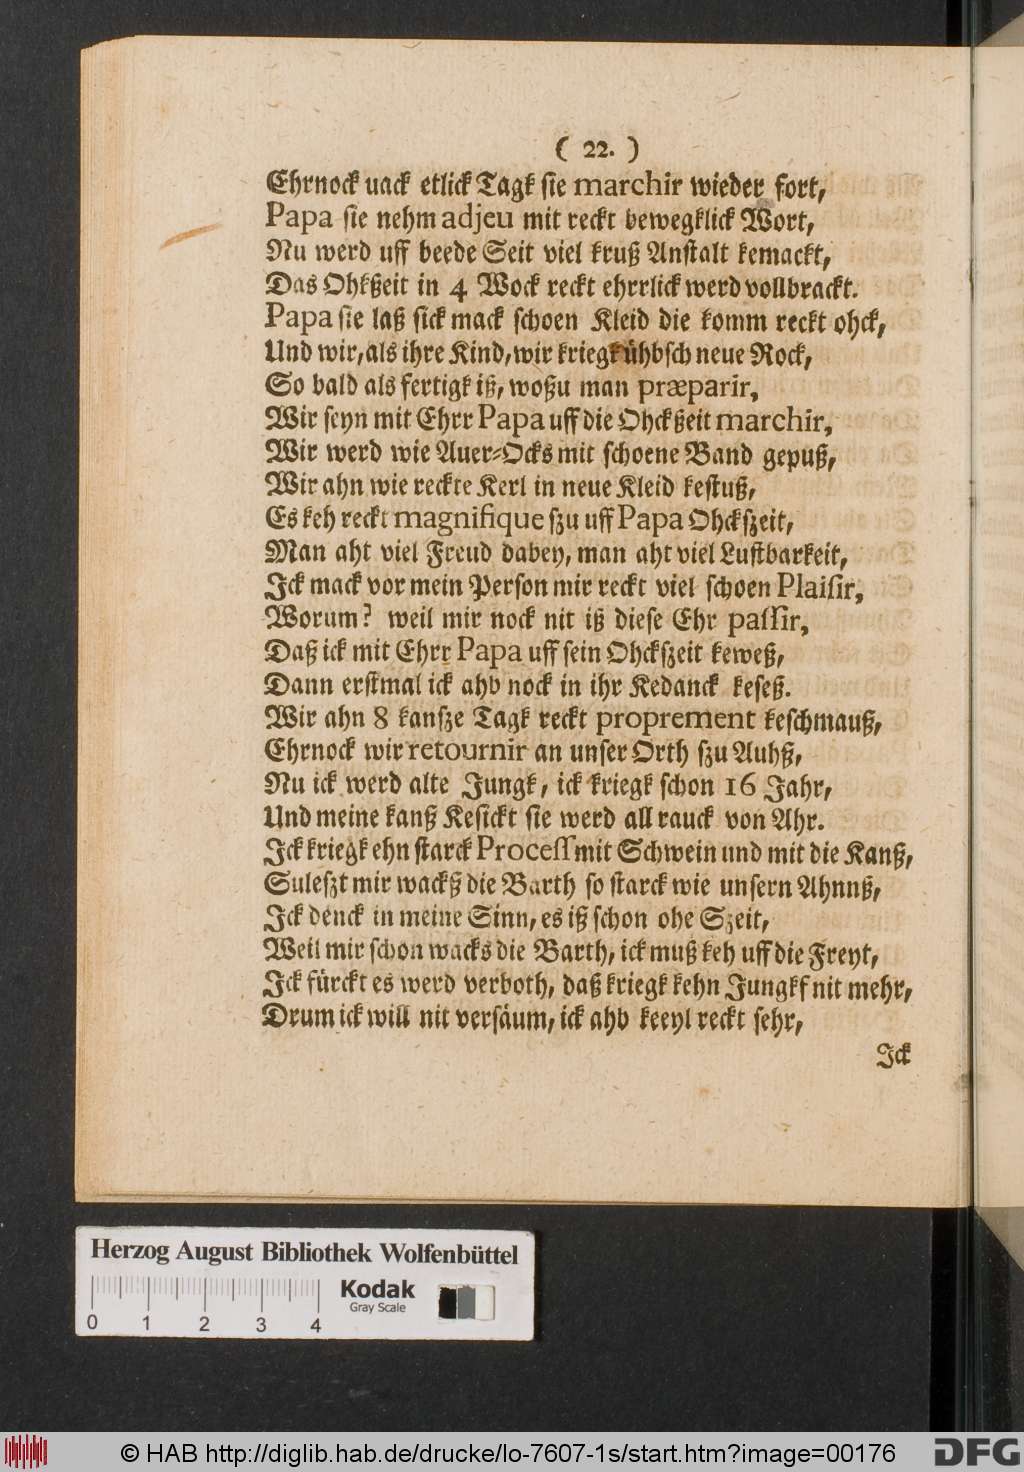 ( 22. )
Ehrnock uack etlick Tagk sie marchir wieder fort,
Papa sie nehm adjeu mit reckt bewegklick Wort,
Nu werd uff beede Seit viel kruß Anstalt kemackt,
Das Ohkßeit in 4 Wock reckt ehrrlick werd vollbrackt.
Papa sie laß sick mack schoen Kleid die komm reckt ohck,
Und wir, als ihre Kind, wir kriegk ühbsch neue Rock,
So bald als fertigk iß, woßu man præparir,
Wir seyn mit Ehrr Papa uff die Ohckßeit marchir,
Wir werd wie Auer-Ocks mit schoene Band gepuß,
Wir ahn wie reckte Kerl in neue Kleid kestuß,
Es keh reckt magnifique szu uff Papa Ohckszeit,
Man aht viel Freud dabey, man aht viel Lustbarkeit,
Ick mack vor mein Person mir reckt viel schoen Plaisir,
Worum? weil mir nock nit iß diese Ehr passir,
Daß ick mit Ehrr Papa uff sein Ohckszeit keweß,
Dann erstmal ick ahb nock in ihr Kedanck keseß.
Wir ahn 8 kansze Tagk reckt proprement keschmauß,
Ehrnock wir retournir an unser Orth szu Auhß,
Nu ick werd alte Jungk, ick kriegk schon 16 Jahr,
Und meine kanß Kesickt sie werd all rauck von Ahr.
Ick kriegk ehn starck Process mit Schwein und mit die Kanß,
Suleszt mir wackß die Barth so starck wie unsern Ahnnß,
Ick denck in meine Sinn, es iß schon ohe Szeit,
Weil mir schon wacks die Barth, ick muß keh uff die Freyt,
Ick fürckt es werd verboth, daß kriegk kehn Jungkf nit mehr,
Drum ick will nit versäum, ick ahb keeyl reckt sehr,
Ick
Herzog August Bibliothek Wolfenbüttel
Kodak
Gray Scale
0 1 2 3 4
© HAB http://diglib.hab.de/drucke/lo-7607-1s/start.htm?image=00176
DFG